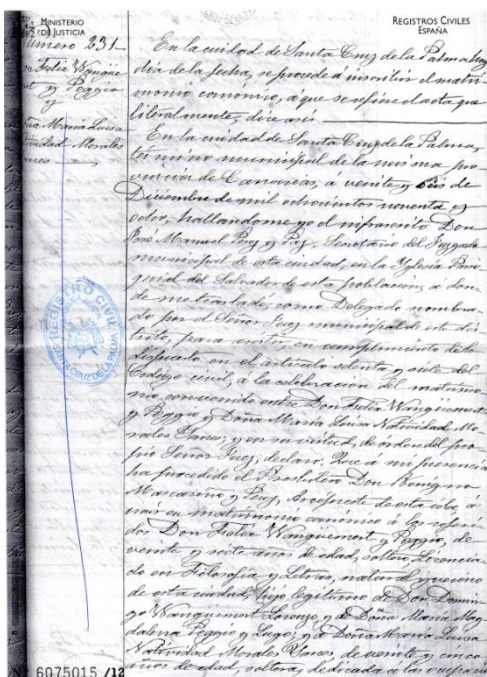 MINISTERIO
DE JUSTICIA
REGISTROS CIVILES
ESPAÑA
Número 231
Don Felix Wangüe
t y Poggio
y
Doña María Luisa
Natividad Morales
En la ciudad de Santa Cruz de la Palma
dia de la fecha, se procede á inscribir el matri
monio canónico, á que se refiere el acta que
literalmente, dice así
En la ciudad de Santa Cruz de la Palma,
término municipal de la misma pro
vincia de Canarias, á veinte y seis de
Diciembre de mil ochocientos noventa y
ocho, hallandome yo el infrascrito Don
José Manuel Secretario del Juzgado
municipal de esta ciudad, en la Yglesia Parro
quial del Salvador de esta poblacion, á don
de me trasladé, como Delegado nombra
do por el Señor Juez municipal de este dis
trito, para asistir, en cumplimiento de lo
dispuesto en el artículo setenta y siete del
Código civil, á la celebracion del matrimo
nio convenido entre Don Felix Wangüemert
y Poggio y Doña María Luisa Natividad Mo
rales y en su virtud, de orden del pro
pio Señor Juez, declaro: Que á mi presencia
ha procedido el Presbítero Don Benigno
Mascareño y Arcipreste de esta isla, á
unir en matrimonio canónico á los referi
dos Don Felix Wangüemert y Poggio, de
veinte y siete años de edad, soltero, Licencia
do en Filosofía y Letras, natural y vecino
de esta ciudad, hijo legítimo de Don Domin
go Wangüemert Lorenzo y de Doña María Mag
dalena Poggio y Lugo; y á Doña María Luisa
Natividad Morales de veinte y cinco
años de edad, soltera, dedicada á las
REGISTRO CIVIL
SANTA CRUZ DE LA PALMA
6075015 /12